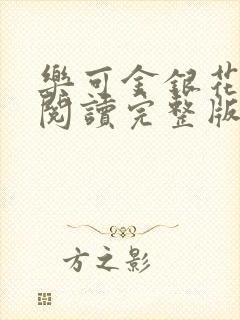 樂可金銀花
閱讀完整版
方之影